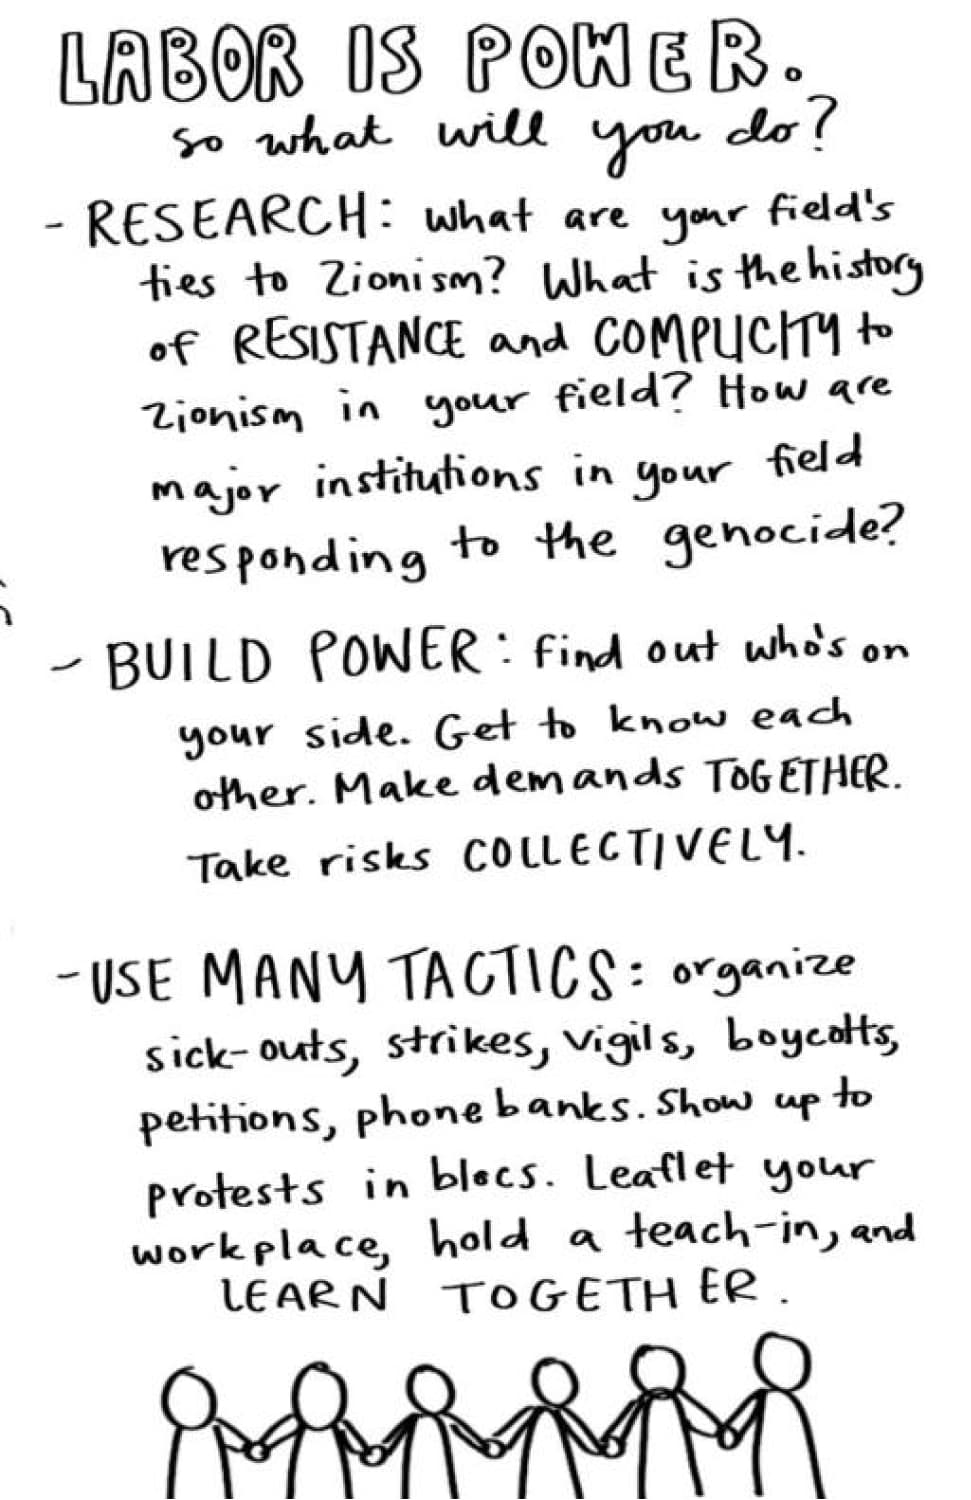 LABOR IS POWER.
so what will you do?
- RESEARCH: what are your field's
ties to Zionism? What is the history
of RESISTANCE and COMPLICITY to
Zionism in your field? How are
major institutions in your field
responding to the genocide?
- BUILD POWER: find out who's on
your side. Get to know each
other. Make demands TOGETHER.
Take risks COLLECTIVELY.
- USE MANY TACTICS: organize
sick-outs, strikes, vigils, boycotts,
petitions, phonebanks. Show up to
protests in blocs. Leaflet your
workplace, hold a teach-in, and
LEARN TOGETHER.